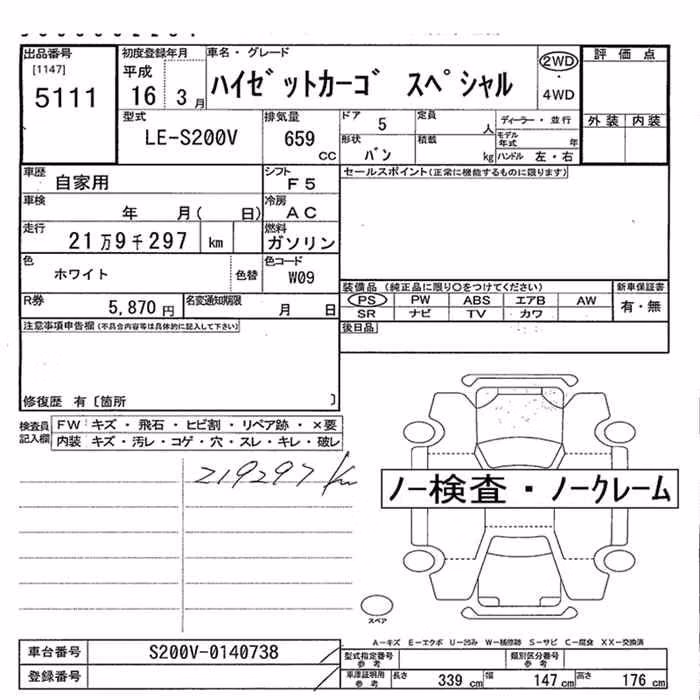 出品番号
[1147]
5111
初度登録年月
平成
16 3月
車名・グレード
ハイゼットカーゴ スペシャル
2WD
・
4WD
評価点
外装 内装
型式
LE-S200V
排気量
659
CC
ドア 5
定員 人
ディーラー・並行
モデル年式 年
形状 バン
積載 kg
ハンドル 左・右
車歴
自家用
シフト
F5
セールスポイント(正常に機能するものに限ります)
車検
年 月( 日)
冷房
AC
走行
21万9千297 km
燃料
ガソリン
色
ホワイト
色替
色コード
W09
装備品 (純正品に限り○をつけてください)
新車保証書
PS PW ABS エアB AW
有・無
SR ナビ TV カワ
R券
5,870円
名変通知期限
月 日
後日品
注意事項申告欄(不具合内容等は具体的に記入して下さい)
修復歴 有〔箇所 〕
検査員記入欄
FW キズ・飛石・ヒビ割・リペア跡・×要
内装 キズ・汚レ・コゲ・穴・スレ・キレ・破レ
219297 Km
ノー検査・ノークレーム
スペア
A-キズ E-エクボ U-凹み W-補修跡 S-サビ C-腐食 XX-交換済
車台番号
S200V-0140738
登録番号
型式指定番号
参考
類別区分番号
参考
車庫証明用
参考
長さ 339 cm
幅 147 cm
高さ 176 cm